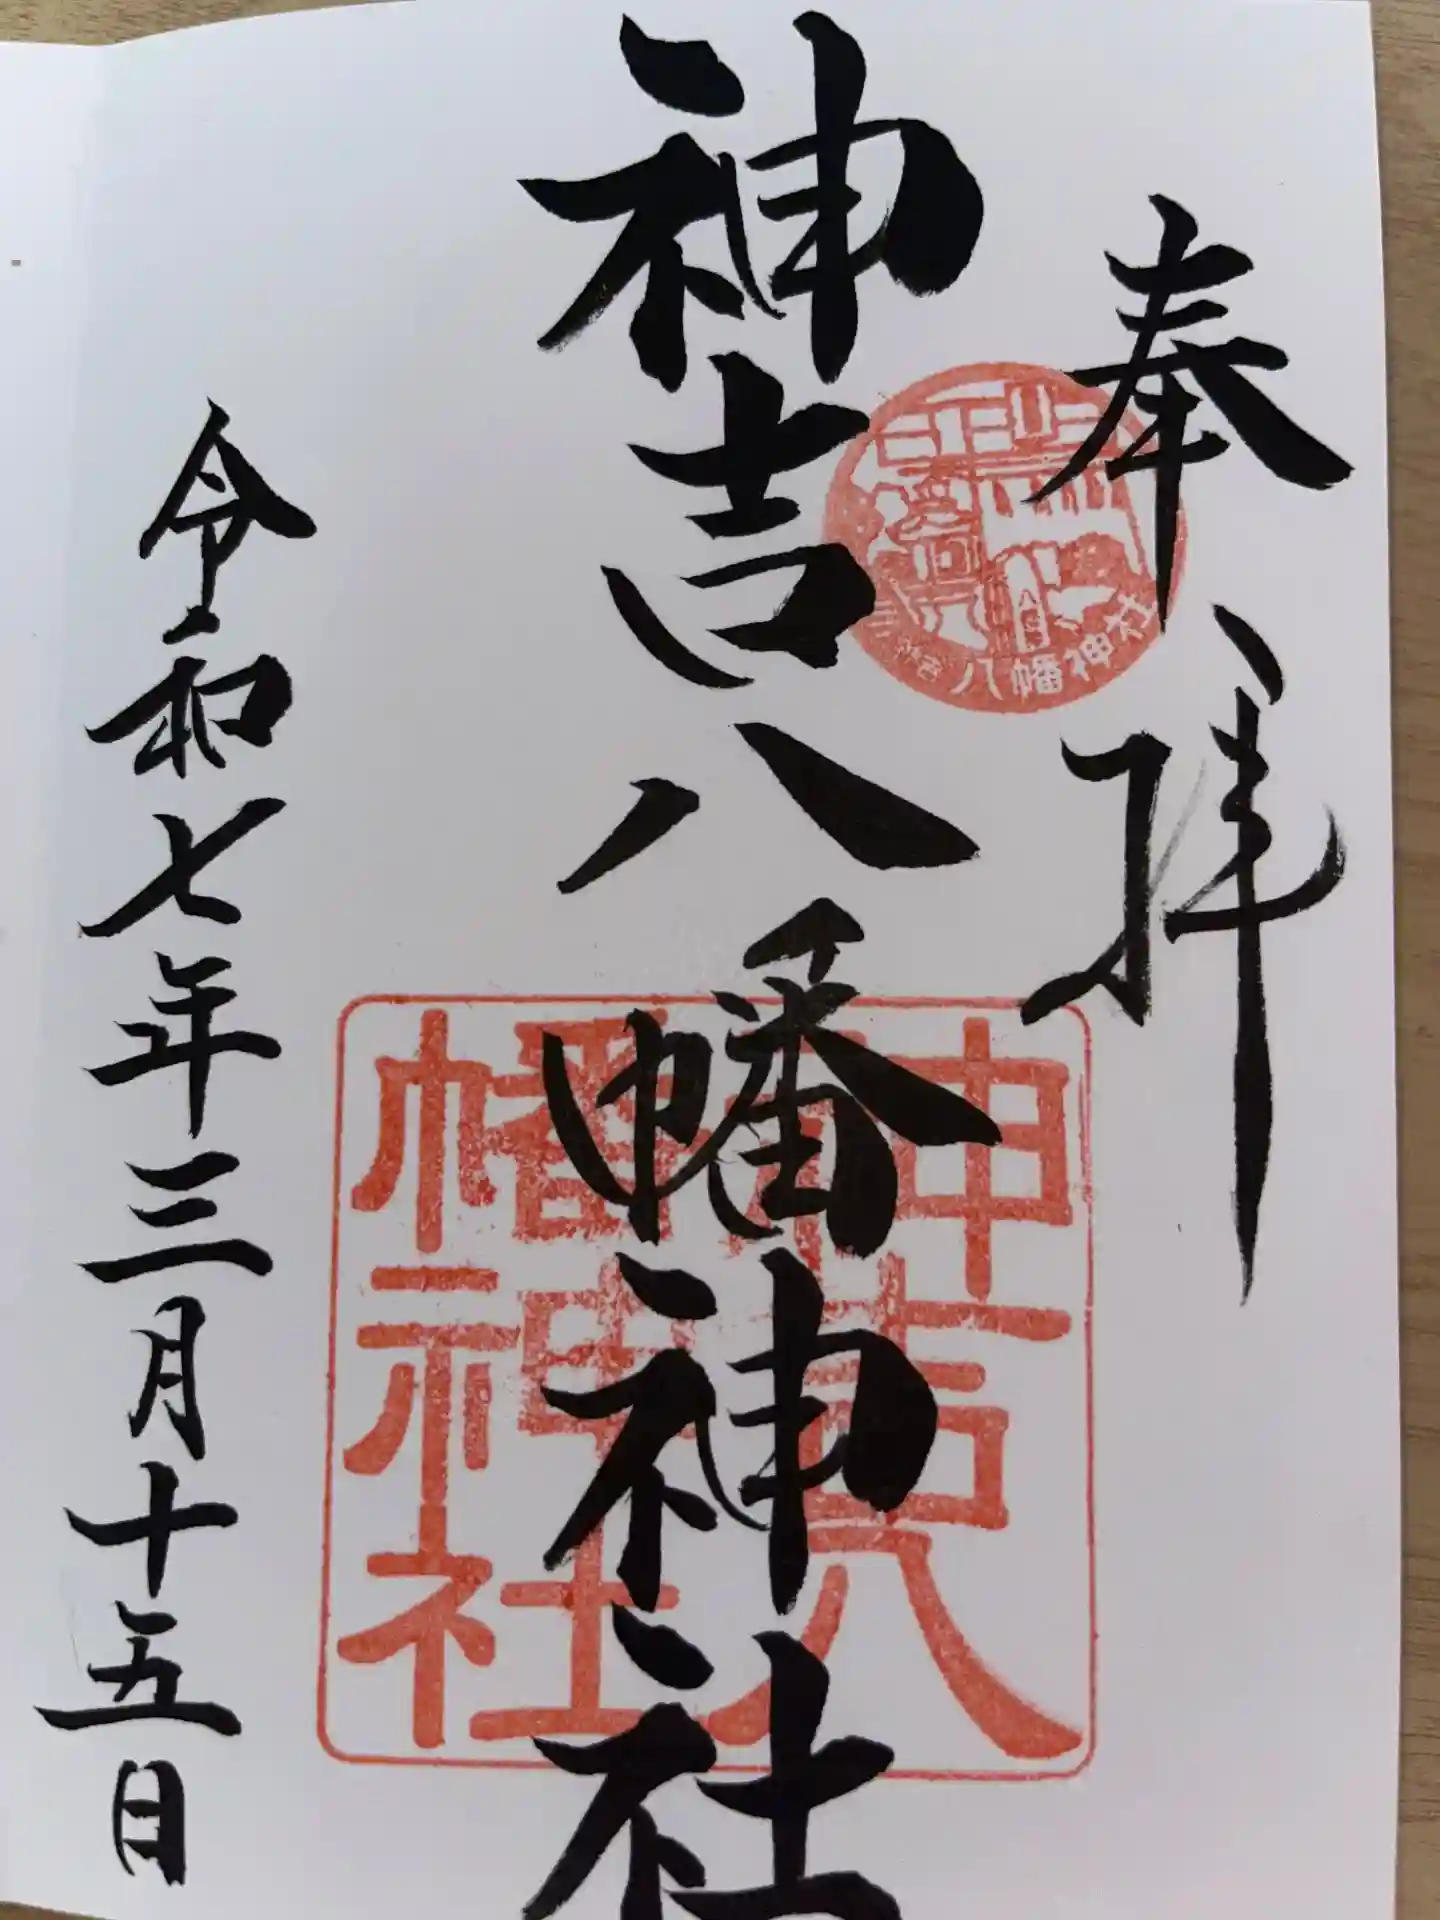 奉拝
神吉八幡神社
神吉八
幡神社
八幡神社
令和七年三月十五日